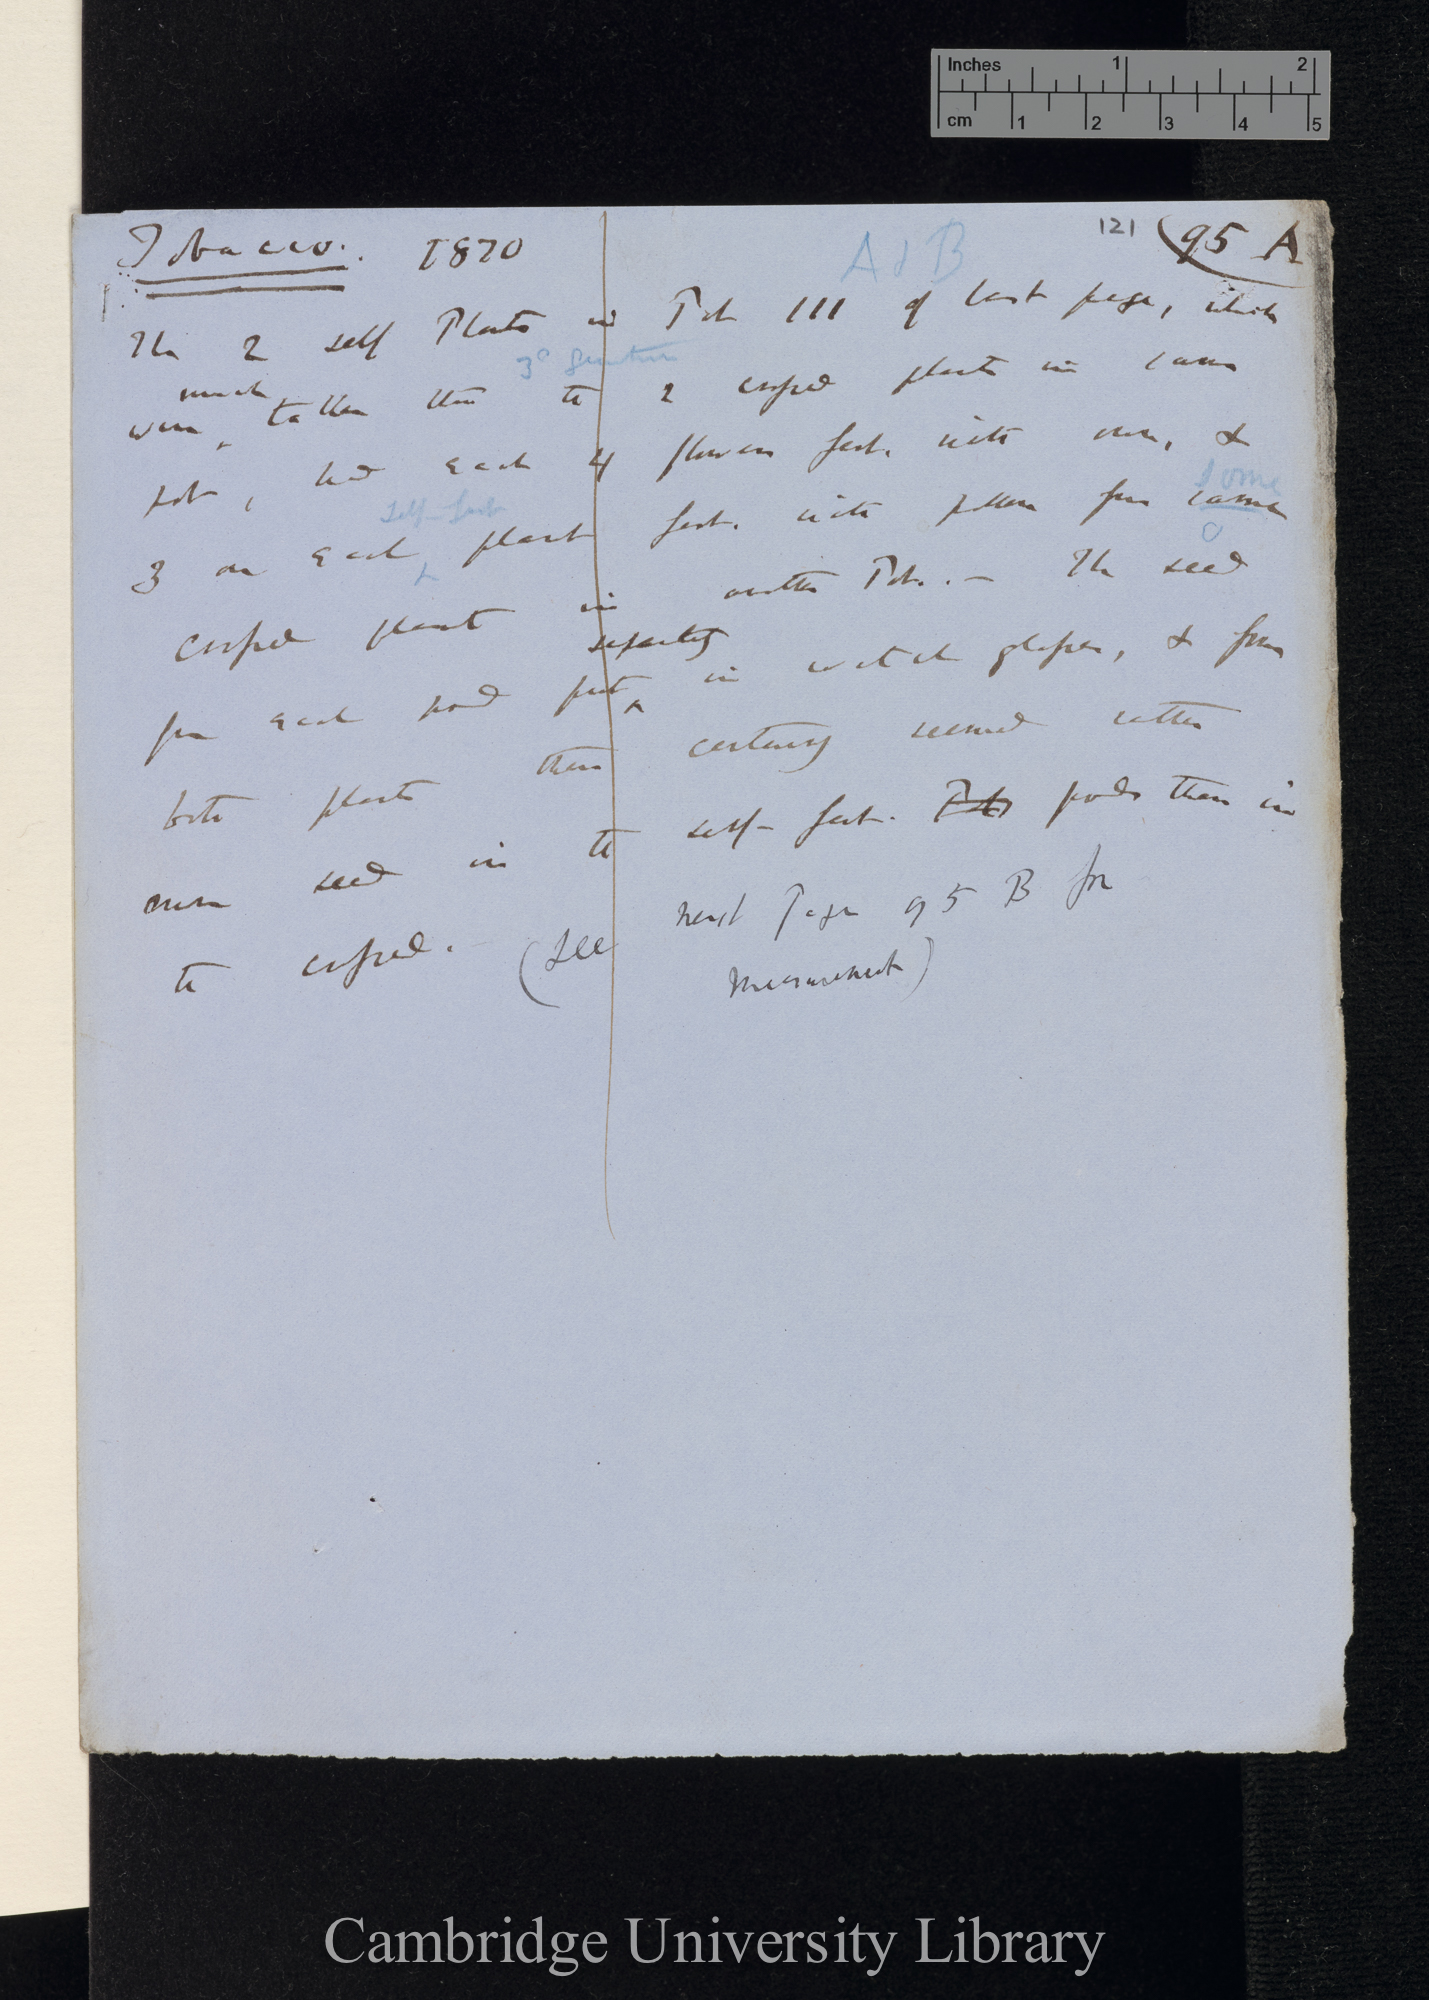 Inches 1 2
cm 1 2 3 4 5
Tobacco. 1870
A & B
121
95 A
The 2 self Plants in Pot III of last page, which
3° generation
were much taller than the 2 crossed plants in same
pot, had each 4 flowers fert. with own, &
self-fert
some
3 on each plant fert. with pollen from same
crossed plant in another Pot. — The seed
separately
from each pod put in watch glasses, & from
both plants there certainly seemed rather
more seed in the self-fert. Pots pods than in
the crossed. — (See next Page 95 B for
measurements)
Cambridge University Library